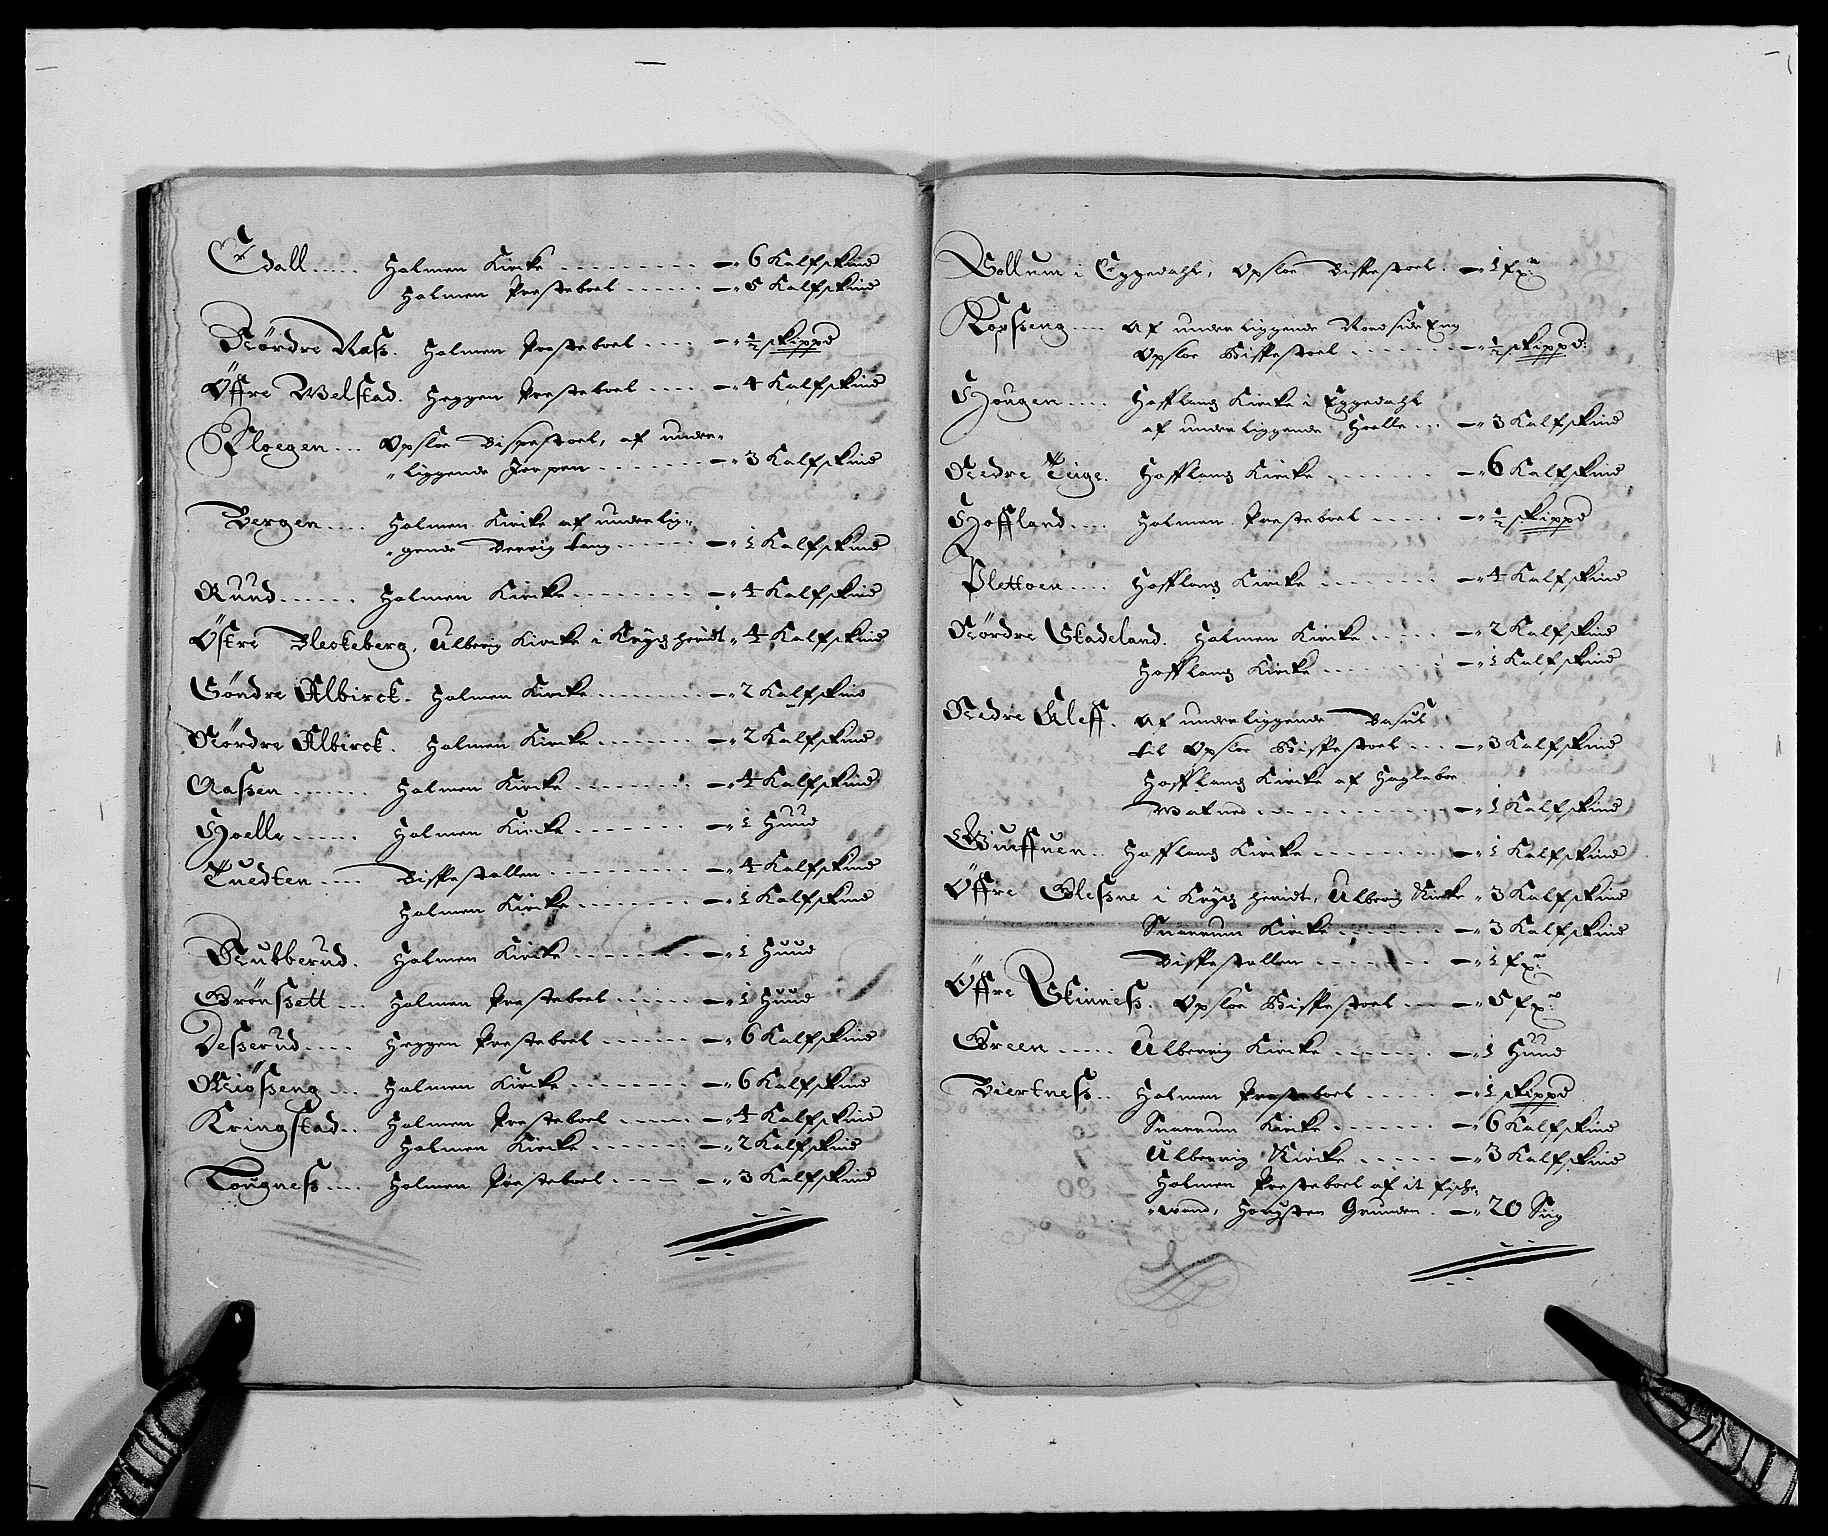 Edall ..... Holmen Kircke .......... 6 Kalfskind
Holmen Presteboel ...... 5 Kalfskind
Nördre Nass. Holmen Presteboel ..... ½ skippd
Öffre Welstad. Heggen Presteboel ..... 4 Kalfskind
Ploegen ... Opsloe Bispestoel, af under-
liggende Jorpen ....... 3 Kalfskind
Bergen .... Holmen Kircke af underlig-
gende Berrig tang ...... 1 Kalfskind
Ruud ...... Holmen Kircke ........ 4 Kalfskind
Östre Bleckeberg, Ulberrig Kircke i Krydsherridt 4 Kalfskind
Söndre Albirck. Holmen Kircke ........ 2 Kalfskind
Nördre Albirck. Holmen Kircke ....... 2 Kalfskind
Aassen ....... Holmen Kircke ........ 4 Kalfskind
Hoelle ...... Holmen Kircke ........ 1 Huud
Tuedten .... Bispestollen .......... 4 Kalfskind
Holmen Kircke ........ 1 Kalfskind
Rubberud. Holmen Kircke ........ 1 Huud
Grönssett ... Holmen Presteboel ...... 1 Huud
Desserud .... Heggen Presteboel ....... 6 Kalfskind
Miösseng ... Holmen Kircke ........ 6 Kalfskind
Kringstad .. Holmen Presteboel ...... 4 Kalfskind
Holmen Kircke ....... 2 Kalfskind
Tougness .... Holmen Presteboel ..... 3 Kalfskind
Bollum i Eggedahl, Opsloe Bispestoel. 1 fx:
Kopsseng .... Af underliggende Nordside Eng
Opsloe Bispestoel ....... ½ skippd:
Hougen .... Hofflang Kircke i Eggedahl
af underliggende Hoelle ... 3 Kalfskind
Nedre Teige. Hofflang Kircke ....... 6 Kalfskind
Hoffland .... Holmen Presteboel ..... ½ skippd
Plettoen .... Hofflang Kircke ........ 4 Kalfskind
Nördre Skadeland. Holmen Kircke ..... 2 Kalfskind
Hofflang Kircke ........ 1 Kalfskind
Nedre Kleff. Af underliggende
til Opsloe Bispestoel ... 3 Kalfskind
Hofflang Kircke af Hagleboe
Watned .............. 1 Kalfskind
Guffuen .. Hofflang Kircke ........ 1 Kalfskind
Öffre Glessne i Krydsherridt, Ulberrig Kircke 3 Kalfskind
Snarrum Kircke ....... 3 Kalfskind
Bispestollen ......... 1 fx:
Öffre Skinness. Opsloe Bispestoel ... 5 fx:
Green ..... Ulberrig Kircke ....... 1 Huud
Biertness .. Holmen Presteboel ..... 1 skippd
Snarrum Kircke ....... 6 Kalfskind
Ulberrig Kircke ...... 3 Kalfskind
Holmen Presteboel af it fiske-
wand, Grunden. 20